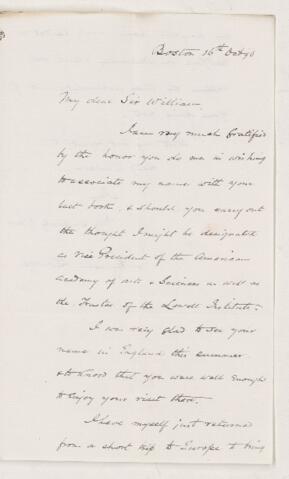 Boston 16th Oct 90
My dear Sir William,
I am very much gratified
by the honor you do me in wishing
to associate my name with your
last book, & should you carry out
the thought I might be designated
as Vice President of the American
Academy of Arts & Sciences as well as
the Trustee of the Lowell Institute.
I was very glad to see your
name in England this summer
& to know that you were well enough
to enjoy your visit there.
I have myself just returned
from a short trip to Europe to bring